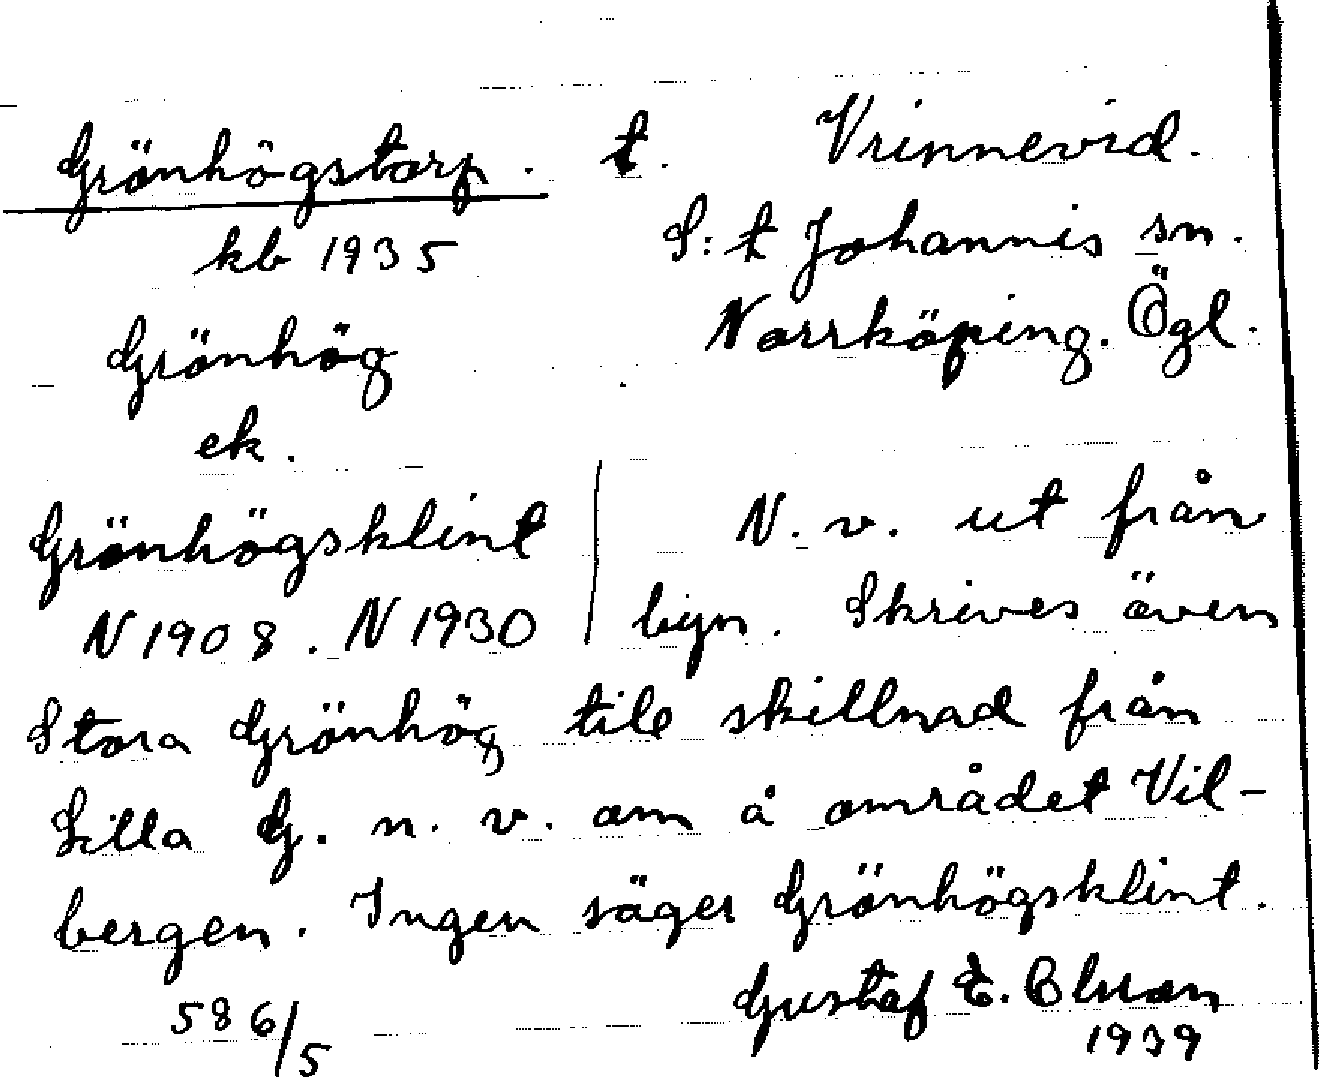 Grönhögstorp. t. Vrinnevid.
kb 1935 S:t Johannis sn.
Grönhög Norrköping. Ögl.
ek.
Grönhögsklint N.v. ut från
N 1908. N 1930 byn. Skrives även
Stora Grönhög till skillnad från
Lilla G. n. v. om å området Vil-
bergen. Ingen säger Grönhögsklint.
586/5 Gustaf E.
1939